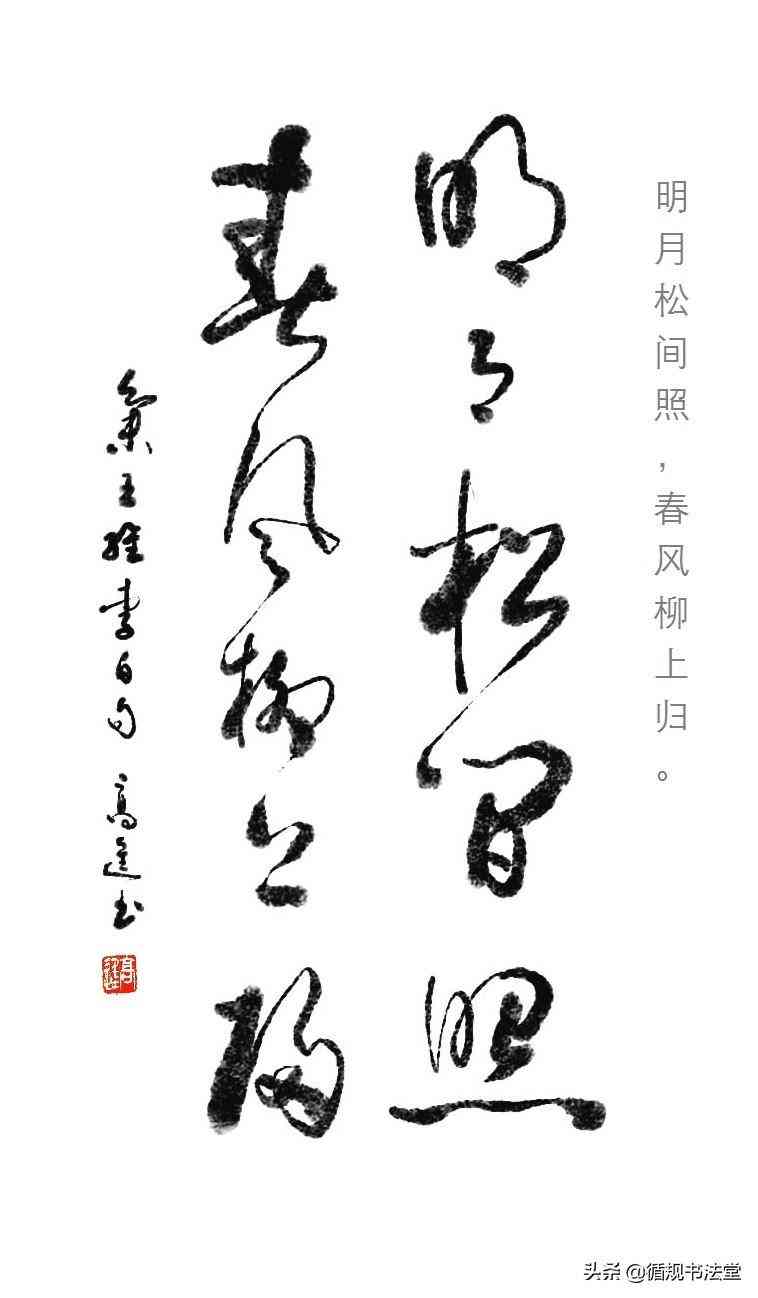 明月松间照，春风柳上归。
明月松間照
春風柳上歸
集王维李白句 高进书
头条 @循规书法堂